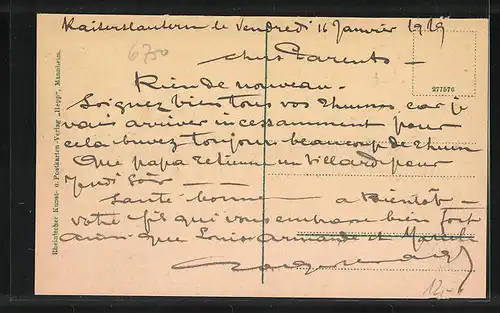 Kaiserslautern le Vendredi 16 Janvier 1919
6700
chers Parents —
Rien de nouveau —
Soignez bien tous vos rhumes, car je
vais arriver incessamment pour
cela buvez toujours beaucoup de rhum
Que papa retienne un billard pour
Jeudi soir —
Santé bonne — a Bientôt —
votre fils qui vous embrasse bien fort
ainsi que Louis Armande et Marcel
277576
Rheinischer Kunst- u. Postkarten-Verlag „Hepp", Mannheim.